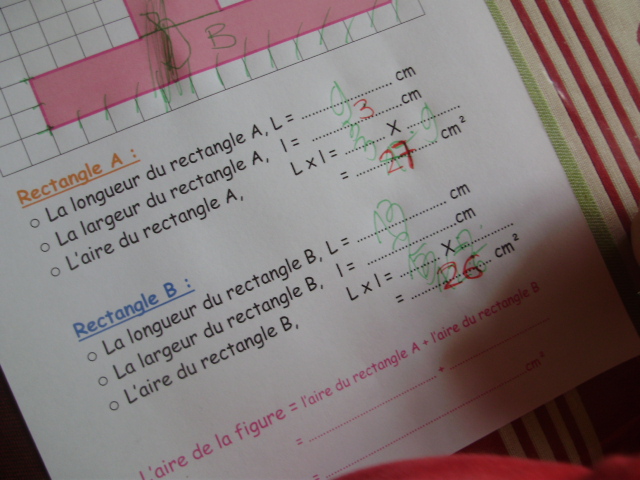 B
Rectangle A :
○ La longueur du rectangle A, L = .................... cm
○ La largeur du rectangle A, l = 3 .................... cm
○ L'aire du rectangle A, L x l = .......... x ..........
= 27 cm²
Rectangle B :
○ La longueur du rectangle B, L = .................... cm
○ La largeur du rectangle B, l = .................... cm
○ L'aire du rectangle B, L x l = .......... x ..........
= 26 cm²
L'aire de la figure = l'aire du rectangle A + l'aire du rectangle B
= .................... + ....................
= .................... cm²